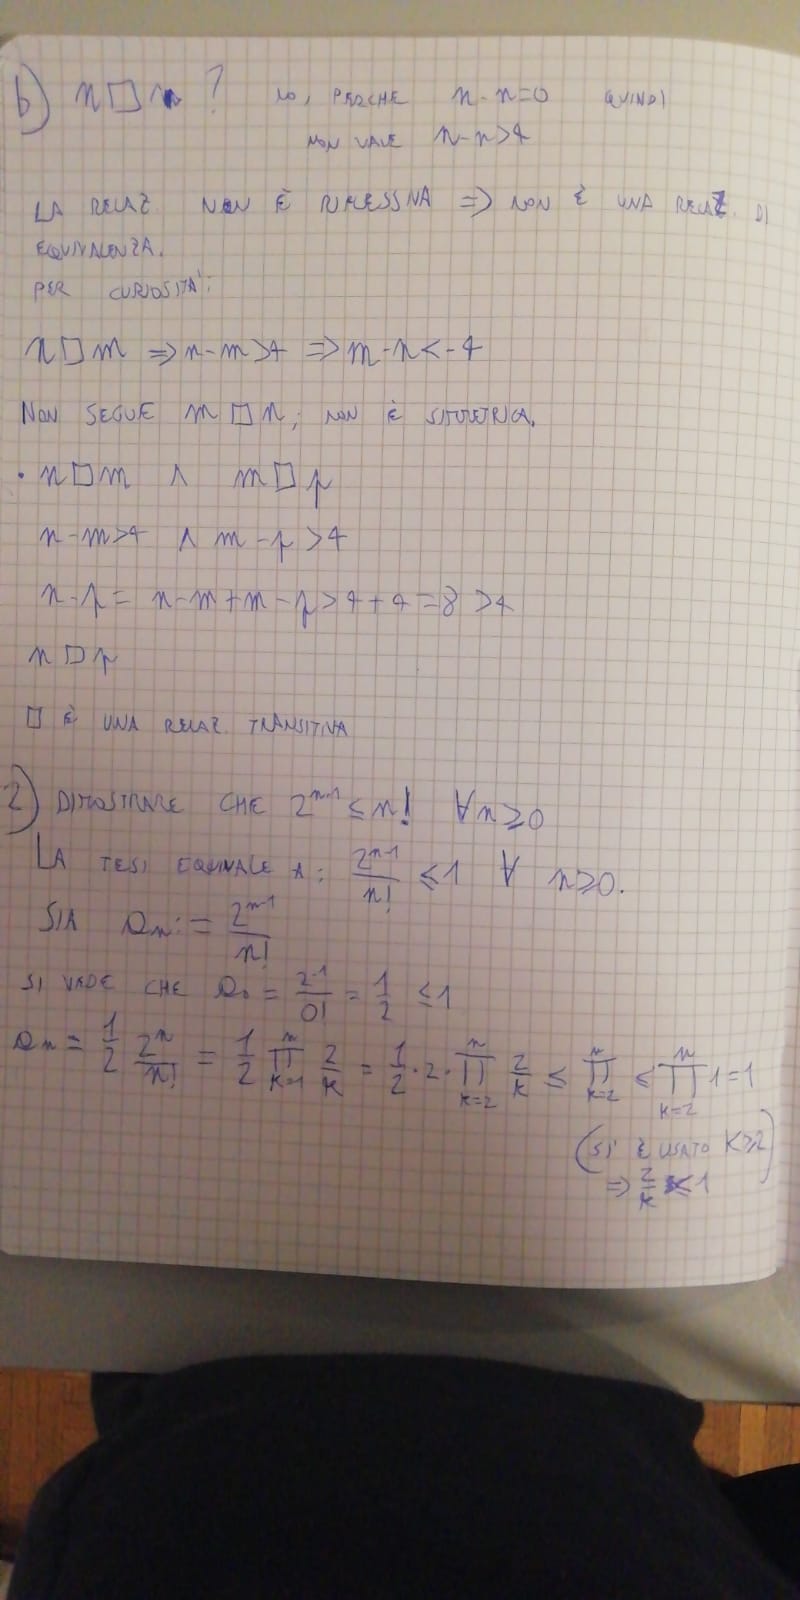 b) n □ n ? NO, PERCHE n-n=0 QUINDI
NON VALE n-n>4
LA RELAZ. NON È RIFLESSIVA => NON È UNA RELAZ. DI
EQUIVALENZA.
PER CURIOSITA':
n □ m => n-m>4 => m-n<-4
NON SEGUE m □ n; NON È SIMMETRICA.
• n □ m ∧ m □ p
n-m>4 ∧ m-p>4
n-p = n-m+m-p>4+4=8>4
n □ p
□ È UNA RELAZ. TRANSITIVA
2) DIMOSTRARE CHE 2^{n-1} ≤ n! ∀n≥0
LA TESI EQUIVALE A: \frac{2^{n-1}}{n!} ≤ 1 ∀ n≥0.
SIA a_n := \frac{2^{n-1}}{n!}
SI VEDE CHE a_0 = \frac{2^{-1}}{0!} = \frac{1}{2} ≤ 1
a_n = \frac{1}{2} \frac{2^n}{n!} = \frac{1}{2} \prod_{k=1}^{n} \frac{2}{k} = \frac{1}{2} · 2 · \prod_{k=2}^{n} \frac{2}{k} ≤ \prod_{k=2}^{n} ≤ \prod_{k=2}^{n} 1=1
(SI È USATO K≥2
=> \frac{2}{k} ≤ 1)